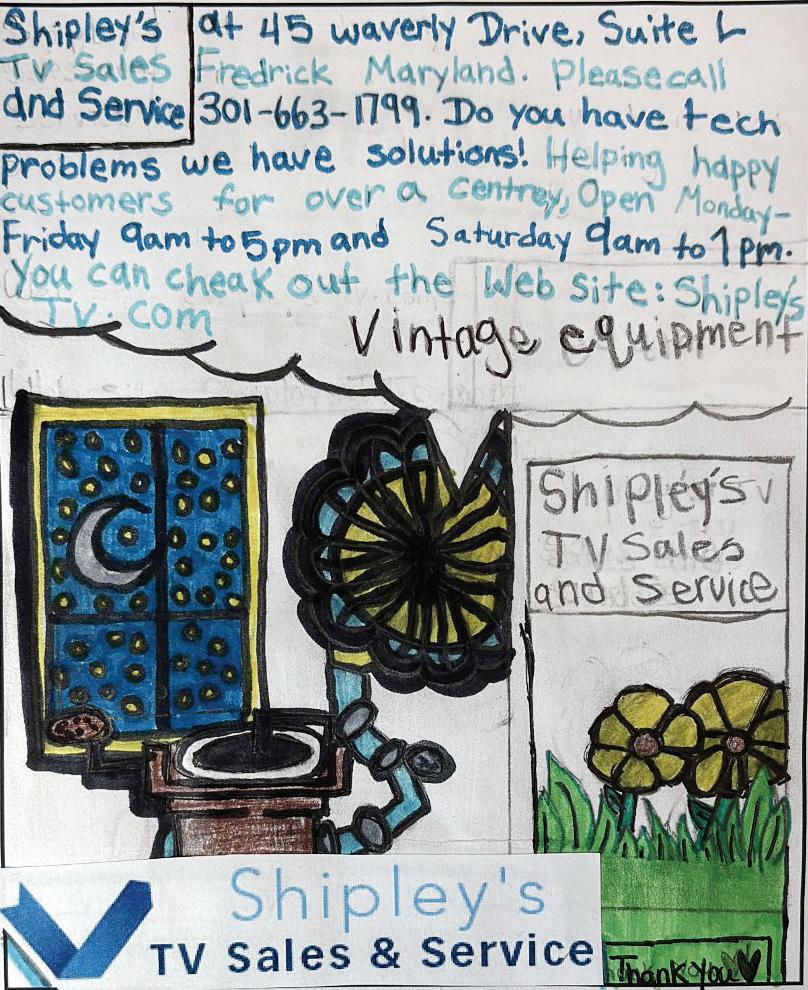 Shipley's
TV Sales
and Service
at 45 waverly Drive, Suite L
Fredrick Maryland. Please call
301-663-1799. Do you have tech
problems we have solutions! Helping happy
customers for over a Centrey, Open Monday-
Friday 9am to 5pm and Saturday 9am to 1pm.
You can cheak out the Web Site: Shipley's
TV.com
Vintage equipment
Shipley's
TV Sales
and Service
Shipley's
TV Sales & Service
Thank You